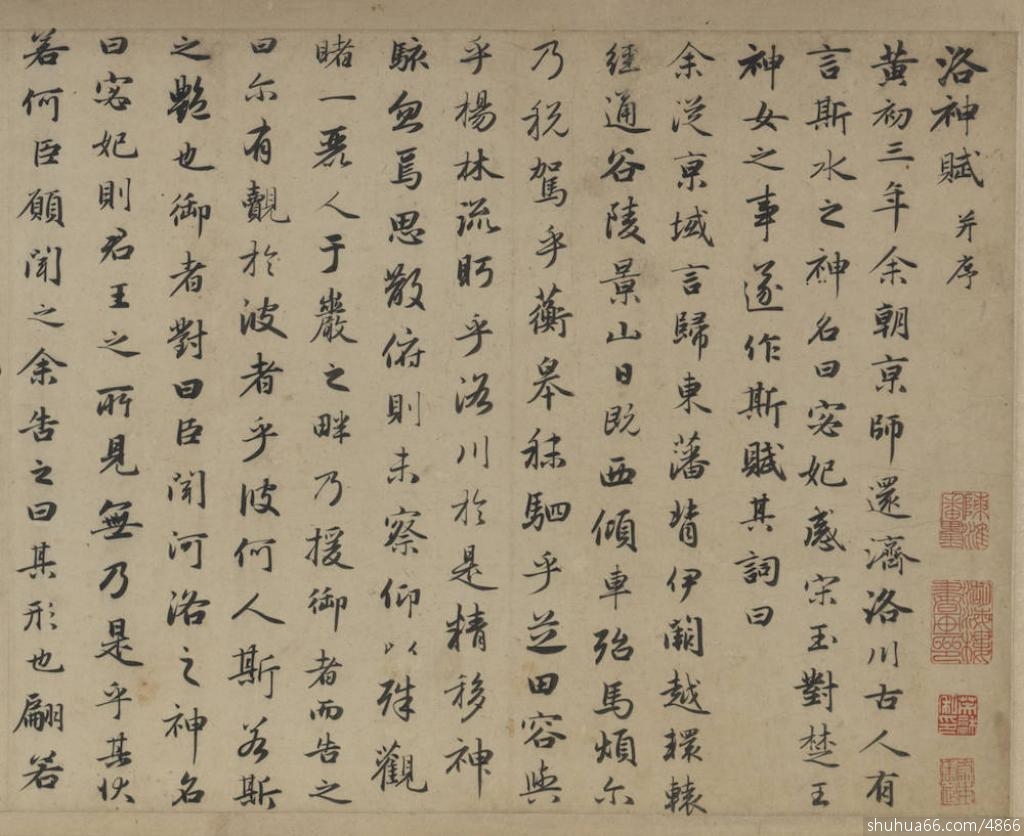 洛神賦 并序
黃初三年余朝京師還濟洛川古人有
言斯水之神名曰宓妃感宋玉對楚王
神女之事遂作斯賦其詞曰
余從京域言歸東藩背伊闕越轘轅
經通谷陵景山日既西傾車殆馬煩尔
乃稅駕乎蘅皋秣駟乎芝田容與
乎楊林流眄乎洛川於是精移神
駭忽焉思散俯則未察仰以殊觀
睹一麗人于巖之畔乃援御者而告之
曰尔有覿於彼者乎彼何人斯若斯
之豔也御者對曰臣聞河洛之神名
曰宓妃則君王之所見無乃是乎其狀
若何臣願聞之余告之曰其形也翩若
shuhua66.com/4866